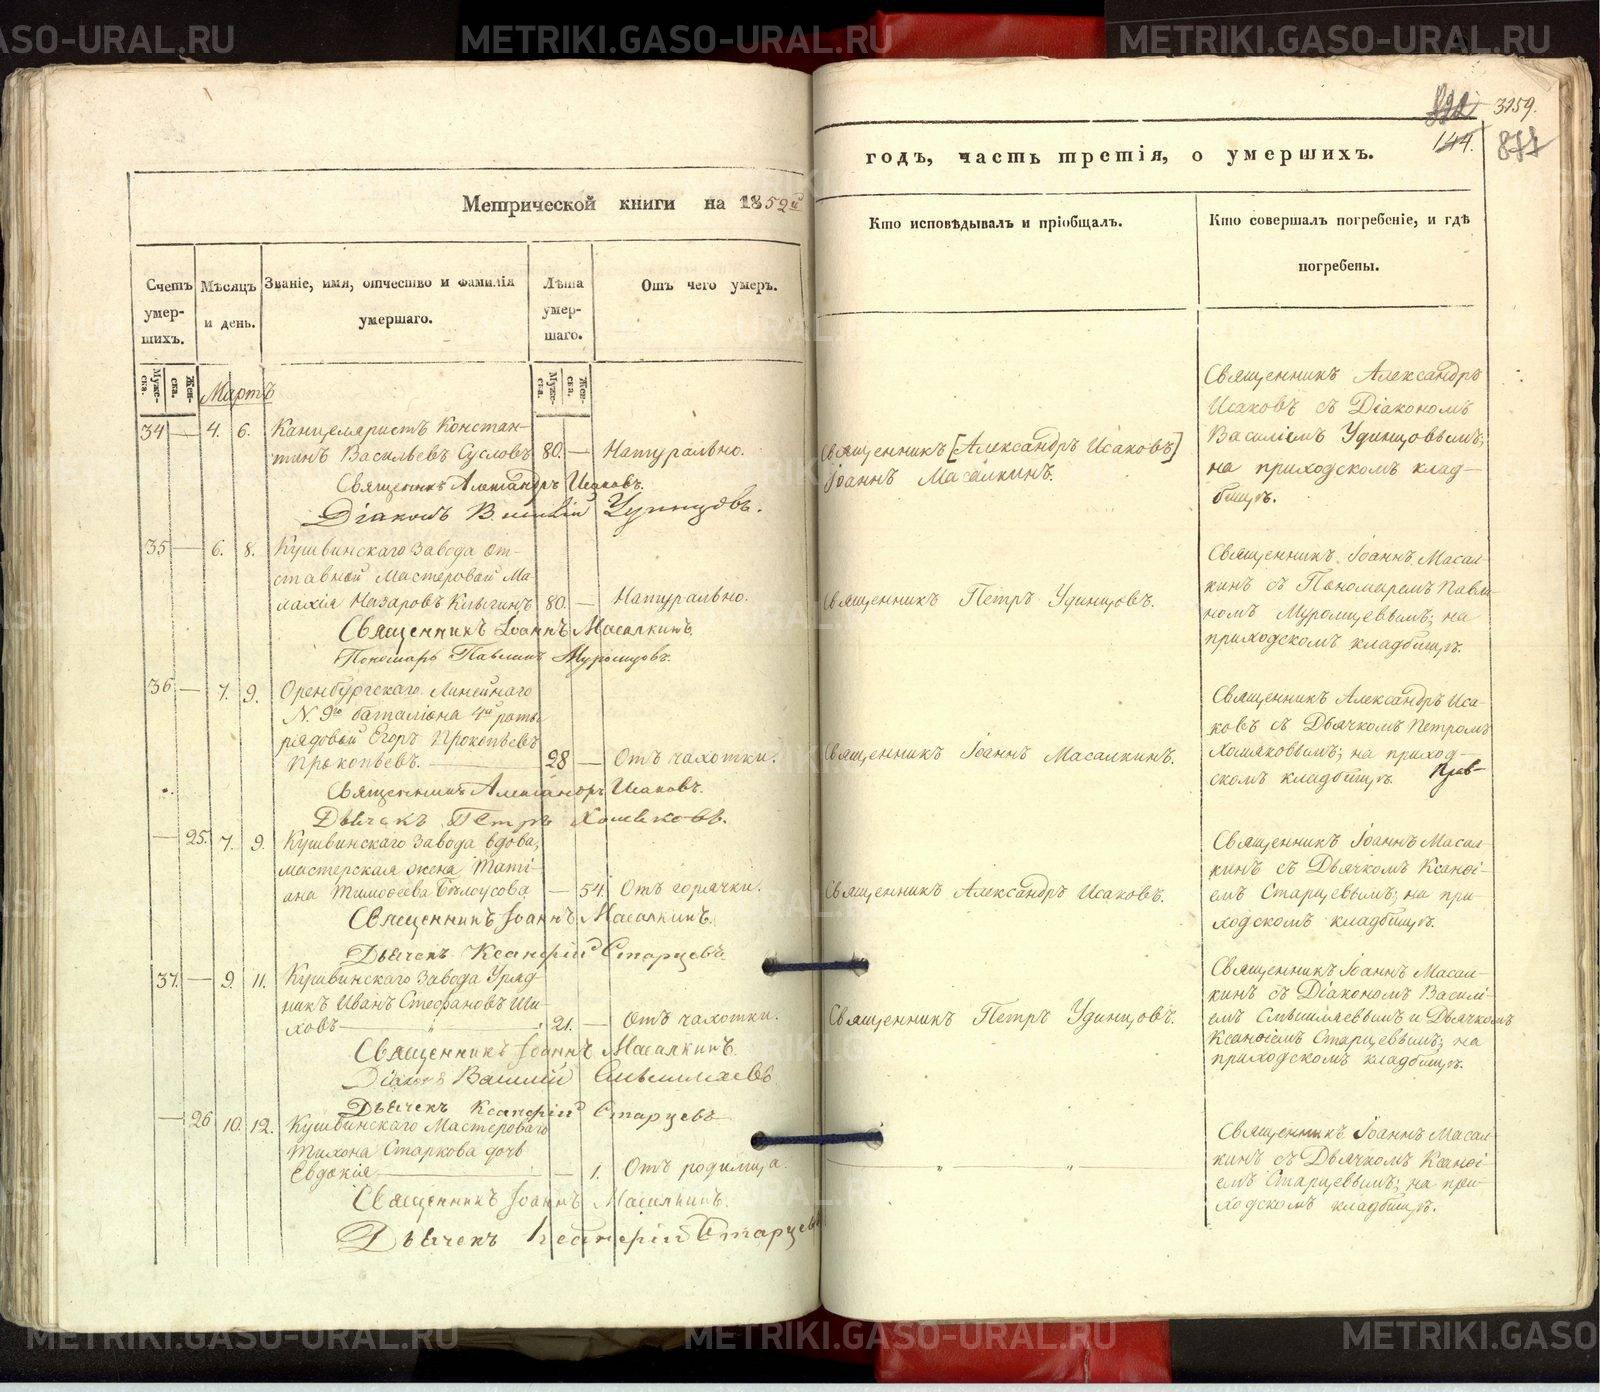 METRIKI.GASO-URAL.RU
3259.
144.
877
Метрической книги на 1852й
годъ, часть третія, о умершихъ.
Счетъ умерших.
Мѣсяцъ и день.
Званіе, имя, отчество и фамилія умершаго.
Лѣта умершаго.
Отъ чего умеръ.
Кто исповѣдывалъ и пріобщалъ.
Кто совершалъ погребеніе, и гдѣ погребены.
Мужеска.
Женска.
Мартъ
Мужеска.
Женска.
34 — 4. 6.
Канцеляристъ Констан-
тинъ Васильевъ Сусловъ 80. — Натурально.
Священникъ Александръ Исаковъ.
Діаконъ Василій Удинцовъ.
Священникъ [Александръ Исаковъ]
Іоаннъ Масалкинъ.
Священникъ Александръ
Исаковъ съ Діакономъ
Василіемъ Удинцовымъ;
на приходскомъ клад-
бищѣ.
35 — 6. 8.
Кушвинскаго Завода от-
ставной Мастеровой Ма-
лахія Назаровъ 80. — Натурально.
Священникъ Іоаннъ Масалкинъ.
Пономарь Павлинъ Муромцовъ.
Священникъ Петръ Удинцовъ.
Священникъ Іоаннъ Масал-
кинъ съ Пономаремъ Павли-
номъ Муромцевымъ; на
приходскомъ кладбищѣ.
36 — 7. 9.
Оренбургскаго Линейнаго
N. 9го баталіона 4й роты
рядовой Егоръ Прокопьевъ
Прокопьевъ. 28 — Отъ чахотки.
Священникъ Александръ Исаковъ.
Дьячекъ Петръ Хомяковъ.
Священникъ Іоаннъ Масалкинъ.
Священникъ Александръ Иса-
ковъ съ Дьячкомъ Петромъ
Хомяковымъ; на приход-
скомъ кладбищѣ.
— 25. 7. 9.
Кушвинскаго Завода вдова,
мастерская жена Тати-
ана Тимофеева Бѣлоусова — 54. Отъ горячки.
Священникъ Іоаннъ Масалкинъ.
Дьячекъ Ксанфій Старцевъ.
Священникъ Александръ Исаковъ.
Священникъ Іоаннъ Масал-
кинъ съ Дьячкомъ Ксанфі-
емъ Старцевымъ; на при-
ходскомъ кладбищѣ.
37. — 9. 11.
Кушвинскаго Завода Уряд-
никъ Иванъ Стефановъ Ши-
ховъ — 21. — Отъ чахотки.
Священникъ Іоаннъ Масалкинъ.
Діаконъ Василій Смышляевъ
Дьячекъ Ксанфій Старцевъ
Священникъ Петръ Удинцовъ.
Священникъ Іоаннъ Масал-
кинъ съ Діакономъ Василі-
емъ Смышляевымъ и Дьячкомъ
Ксанфіемъ Старцевымъ; на
приходскомъ кладбищѣ.
— 26 10. 12.
Кушвинскаго Мастероваго
Тихона Старкова дочь
Евдокія — — 1. Отъ родимца.
Священникъ Іоаннъ Масалкинъ.
Дьячекъ Ксанфій Старцевъ
Священникъ Іоаннъ Масал-
кинъ съ Дьячкомъ Ксанфі-
емъ Старцевымъ; на при-
ходскомъ кладбищѣ.